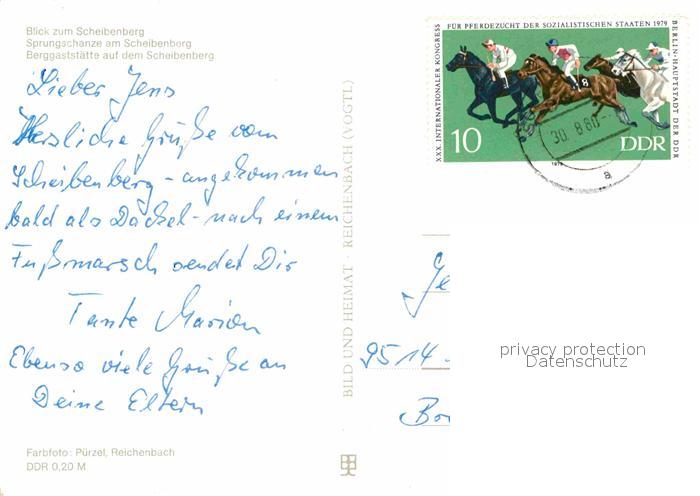 Blick zum Scheibenberg
Sprungschanze am Scheibenberg
Berggaststätte auf dem Scheibenberg
Lieber Jens
Herzliche Grüße vom
Scheibenberg - angekommen
bald als Dackel - nach einem
Fußmarsch sendet Dir
Tante Marion
Ebenso viele Grüße an
Deine Eltern
Farbfoto: Pürzel, Reichenbach
DDR 0,20 M
BILD UND HEIMAT · REICHENBACH (VOGTL)
XXX. INTERNATIONALER KONGRESS FÜR PFERDEZUCHT DER SOZIALISTISCHEN STAATEN 1979 BERLIN-HAUPTSTADT DER DDR
8
10
DDR
1979
30. 8.80
a
Je
9514
Bor
privacy protection
Datenschutz